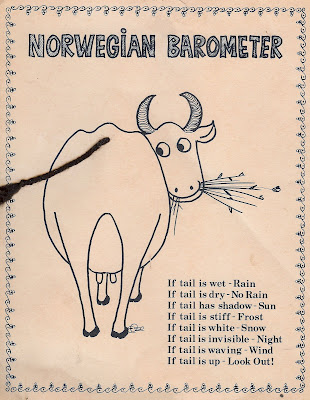 NORWEGIAN BAROMETER
If tail is wet - Rain
If tail is dry - No Rain
If tail has shadow - Sun
If tail is stiff - Frost
If tail is white - Snow
If tail is invisible - Night
If tail is waving - Wind
If tail is up - Look Out!